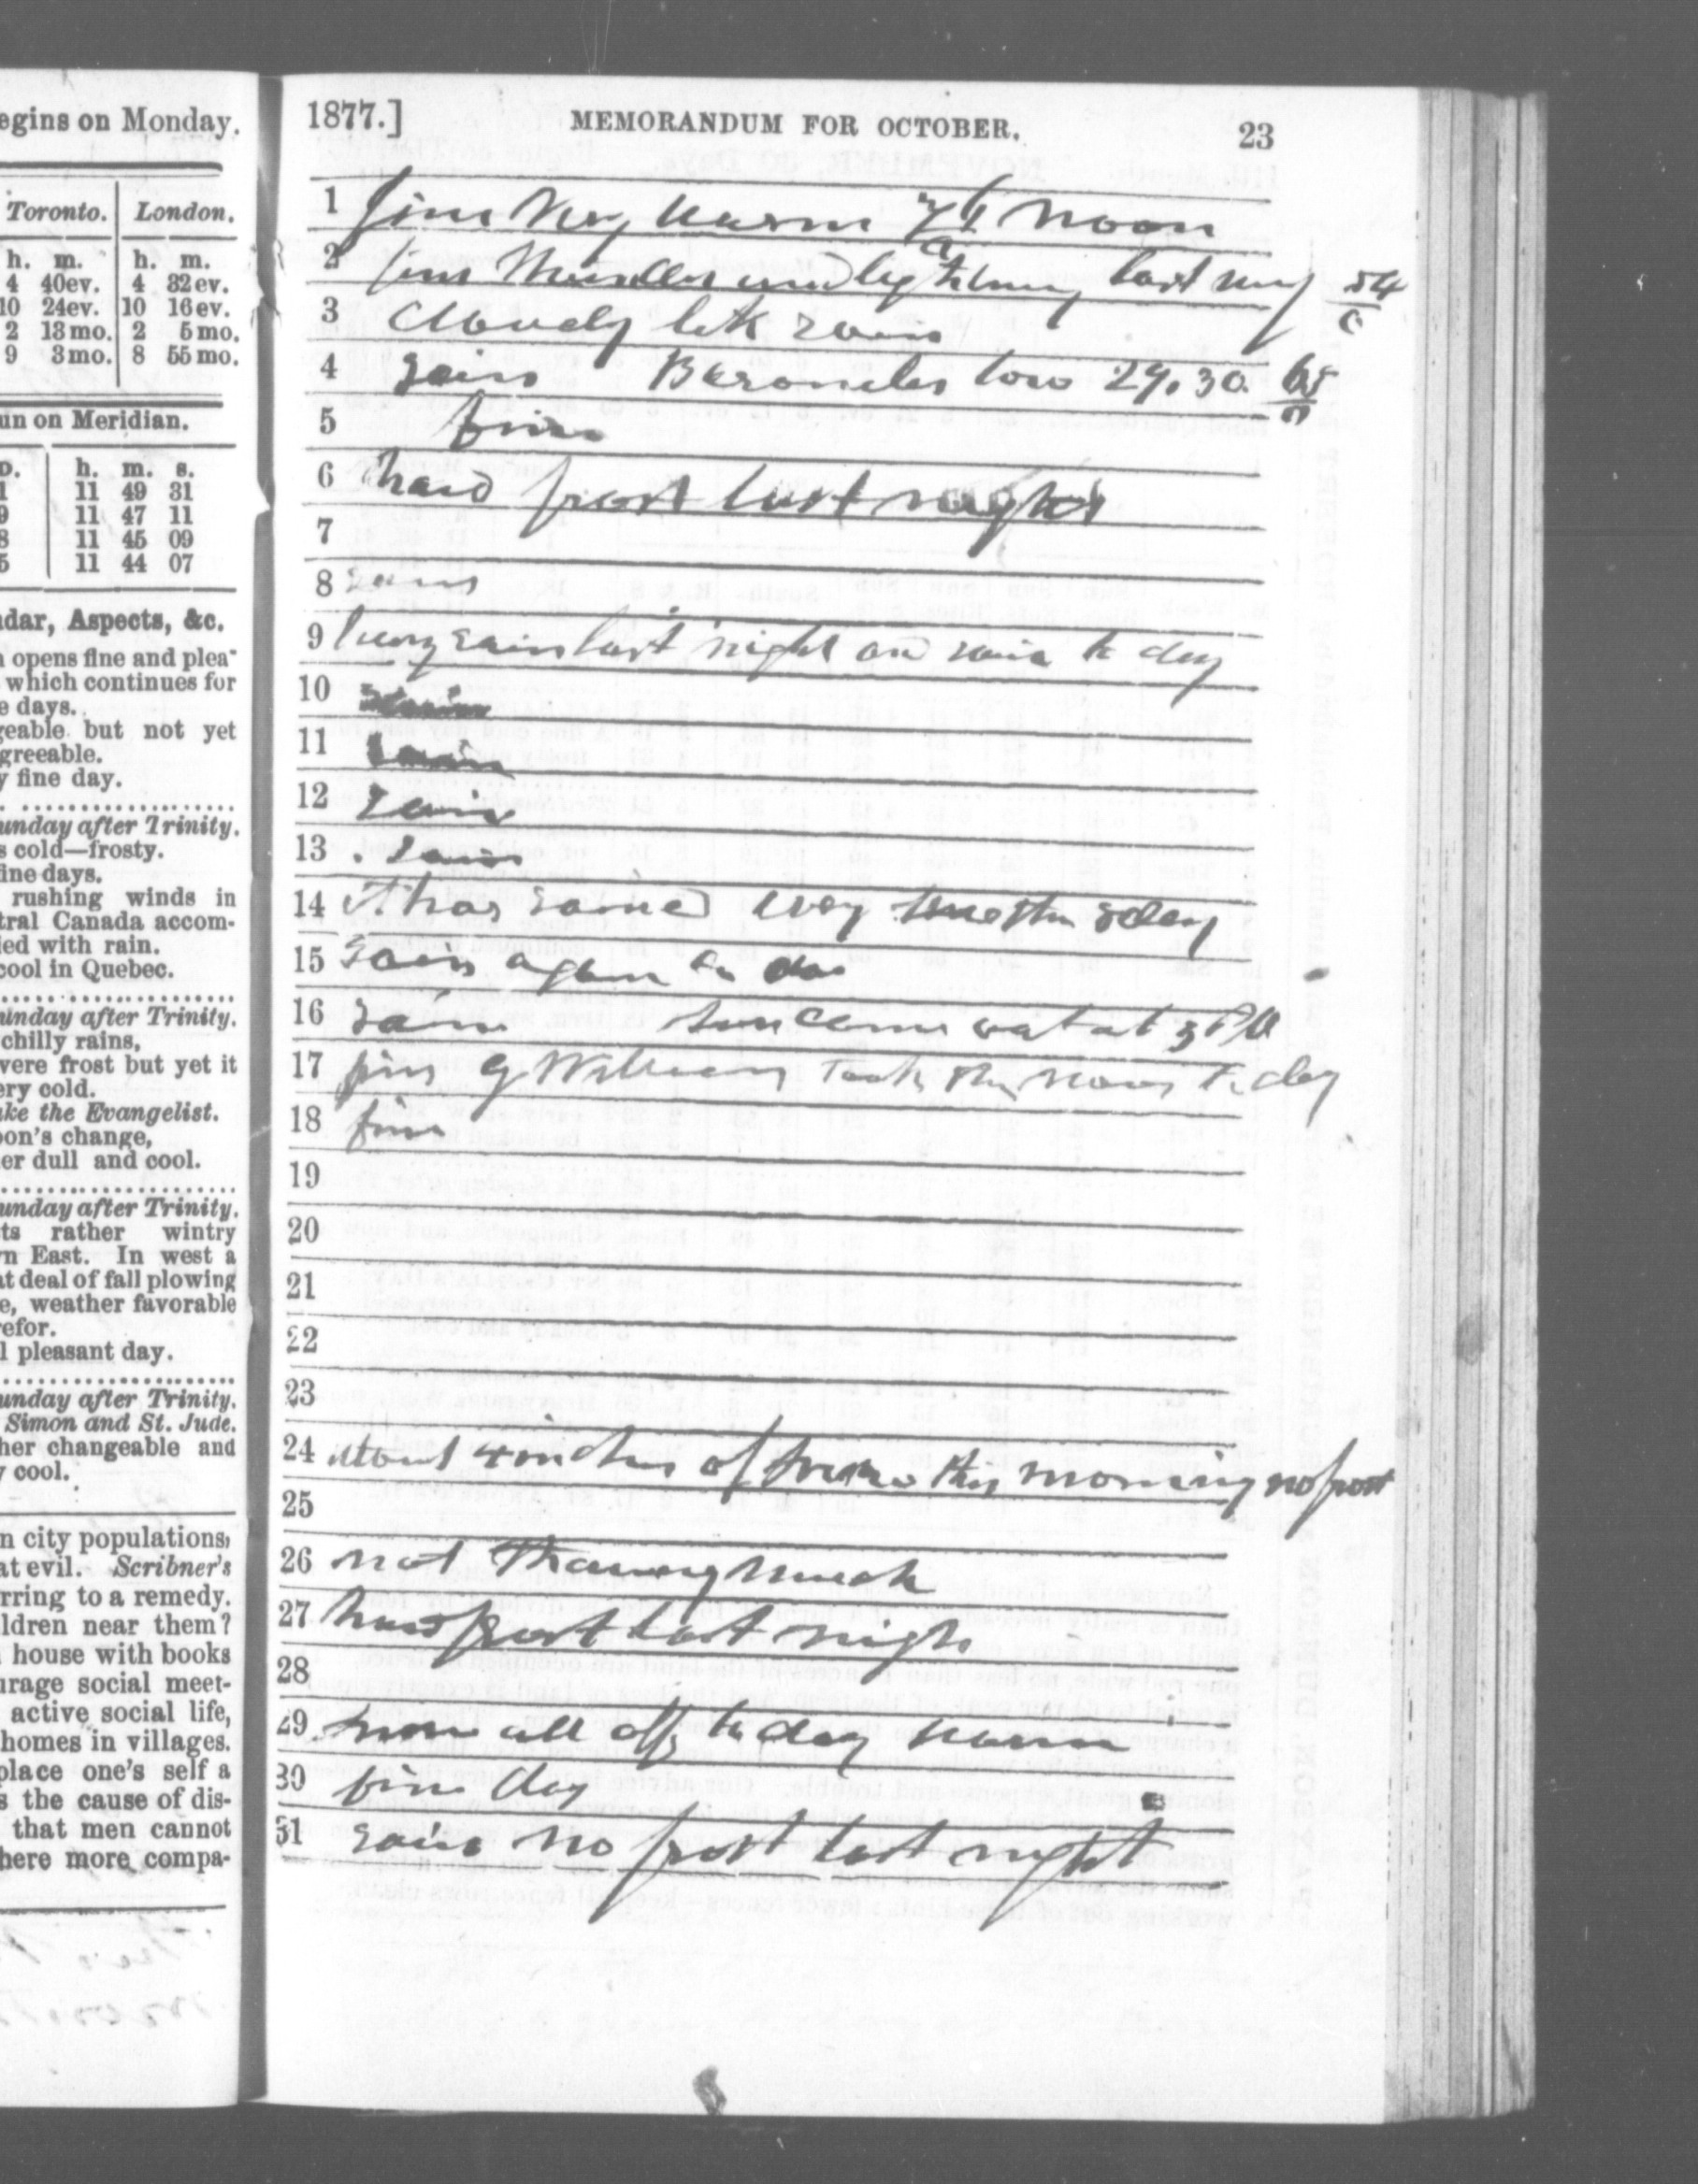 egins on Monday.
Toronto. London.
h. m. h. m.
4 40ev. 4 32ev.
10 24ev. 10 16ev.
2 13mo. 2 5mo.
9 3mo. 8 55mo.
un on Meridian.
h. m. s.
1 11 49 31
9 11 47 11
8 11 45 09
5 11 44 07
dar, Aspects, &c.
opens fine and plea-
which continues for
e days.
geable but not yet
greeable.
y fine day.
unday after Trinity.
s cold—frosty.
ine days.
rushing winds in
tral Canada accom-
ied with rain.
cool in Quebec.
unday after Trinity.
chilly rains,
vere frost but yet it
ery cold.
uke the Evangelist.
oon's change,
er dull and cool.
unday after Trinity.
ts rather wintry
rn East. In west a
at deal of fall plowing
e, weather favorable
refor.
l pleasant day.
unday after Trinity.
Simon and St. Jude.
her changeable and
y cool.
n city populations,
at evil. Scribner's
rring to a remedy.
ildren near them?
house with books
urage social meet-
active social life,
homes in villages.
place one's self a
s the cause of dis-
that men cannot
here more compa-
1877.] MEMORANDUM FOR OCTOBER. 23
1 fine very warm 76 noon
2 fine thunder and lightning last 54/0
3 Cloudy litt rain
4 rain Barometer low 29.30
5 fine
6 hard frost last night
7
8 rain
9 heavy rain last night and rain to day
10 rain
11 rain
12 rain
13 rain
14 it has rained every day
15 rain again to day
16 rain sun came out at 3 PM
17 fine G William took the to day
18 fine
19
20
21
22
23
24 about 4 inches of snow this morning no frost
25
26 not thawing much
27 hard frost last nigh
28
29 snow all off to day warm
30 fine day
31 rain no frost last night